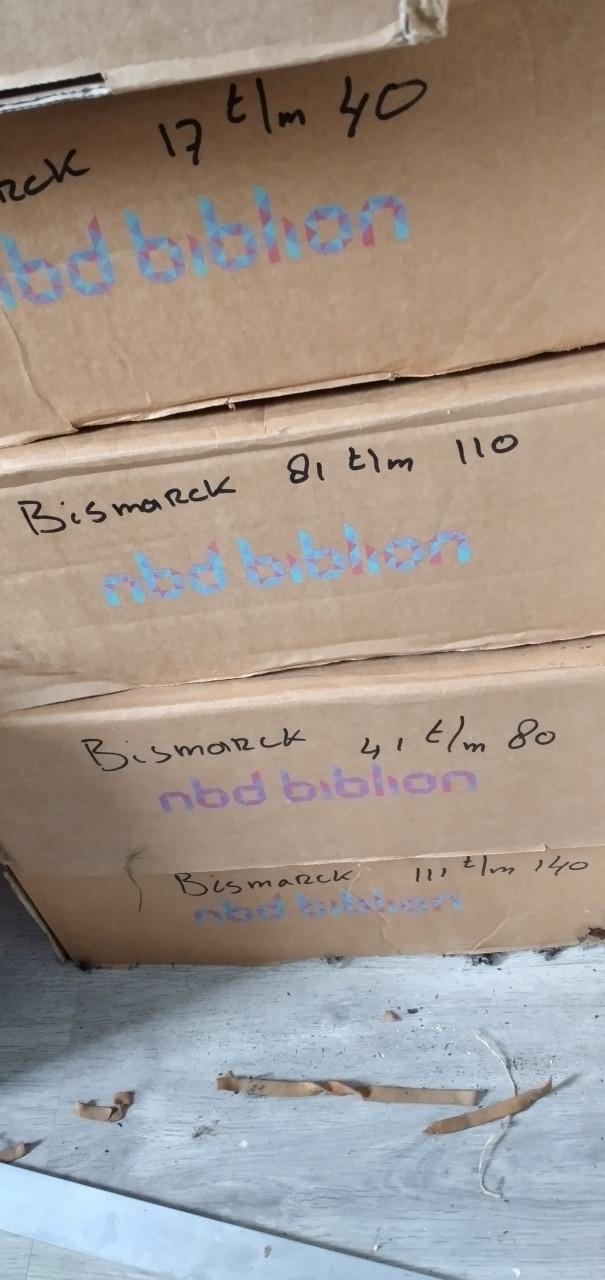 rck 17 t/m 40
nbd biblion
Bismarck 81 t/m 110
nbd biblion
Bismarck 41 t/m 80
nbd biblion
Bismarck 111 t/m 140
nbd biblion